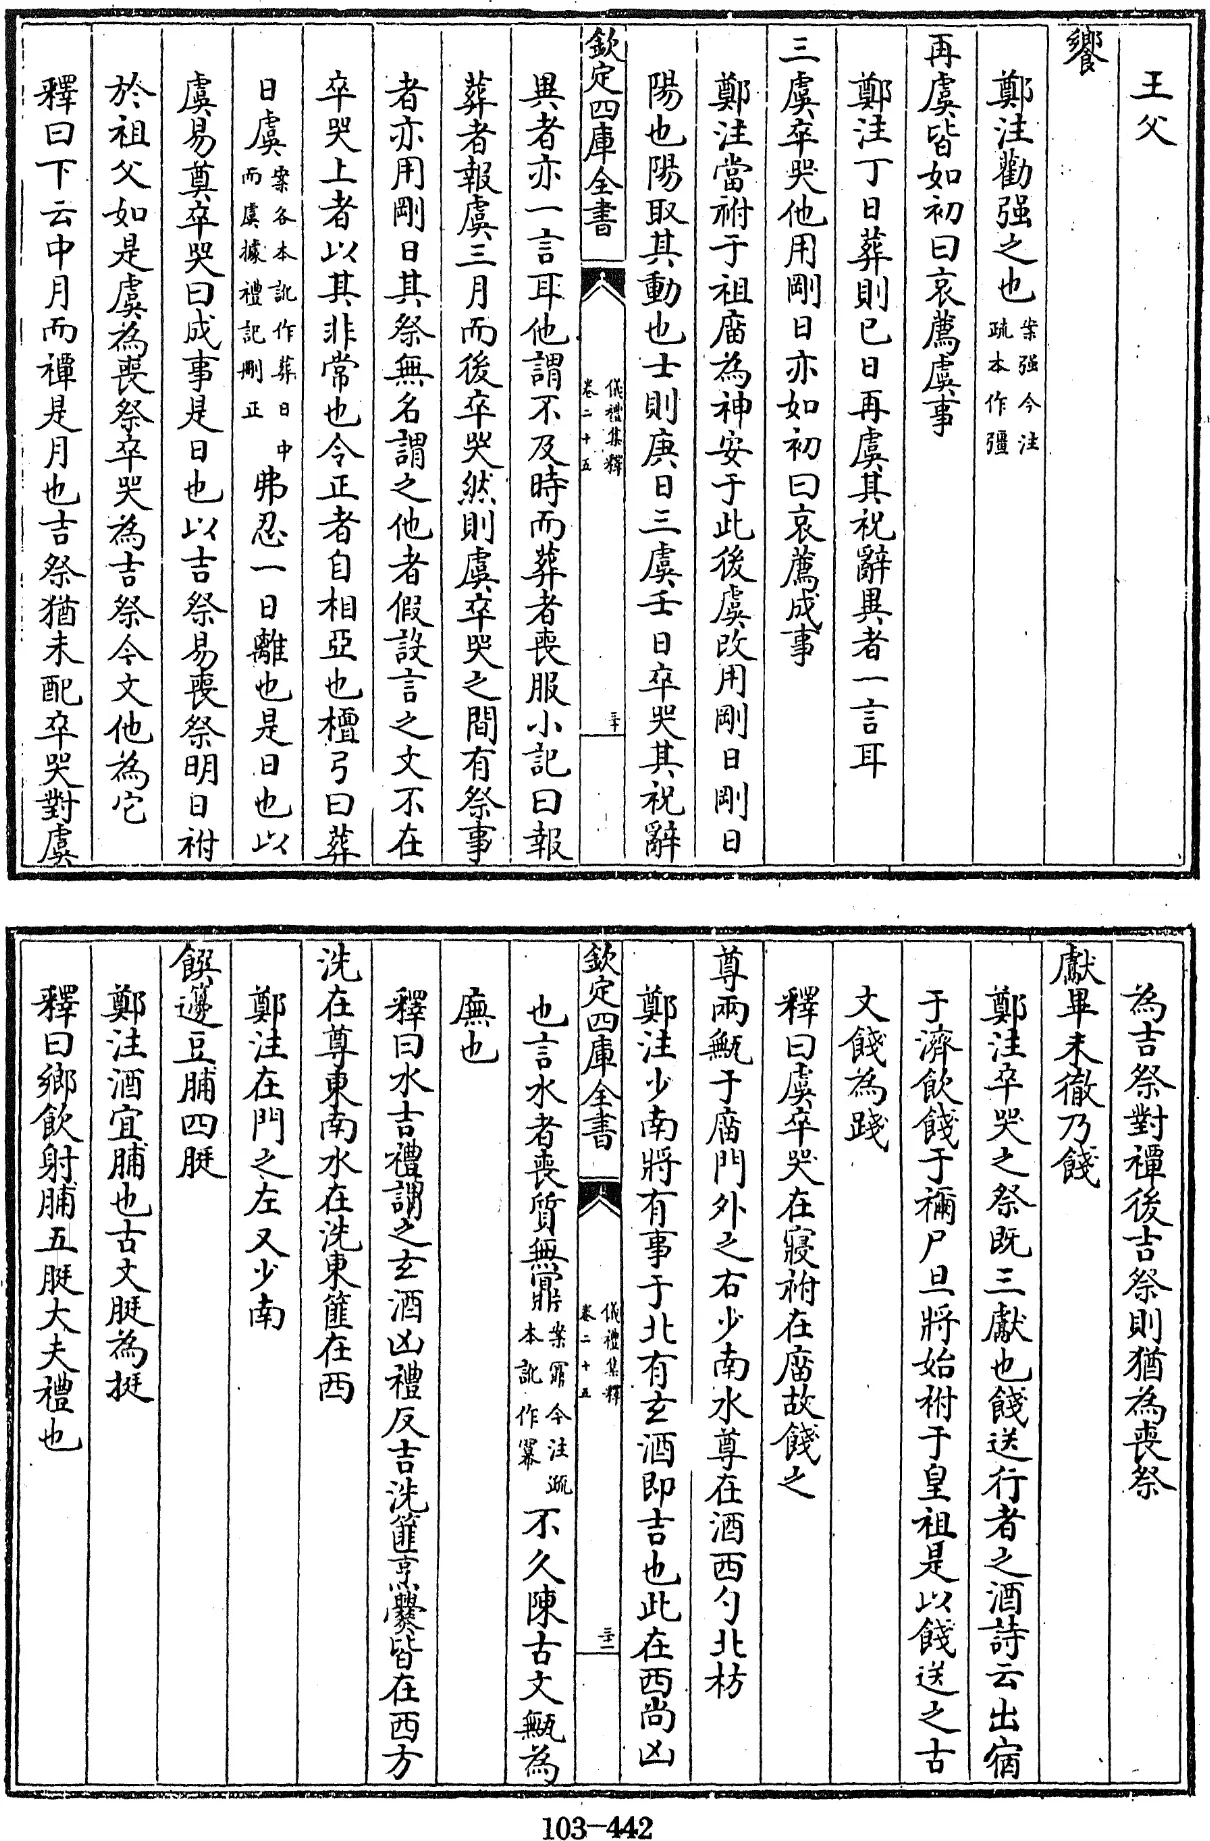 王父
饗
鄭注勸强之也案强今注疏本作彊
再虞皆如初曰哀薦虞事
鄭注丁日葬則已日再虞其祝辭異者一言耳
三虞卒哭他用剛日亦如初曰哀薦成事
鄭注當祔于祖廟為神安于此後虞改用剛日剛日
陽也陽取其動也士則庚日三虞壬日卒哭其祝辭
欽定四庫全書
儀禮集釋
卷二十五
三十
異者亦一言耳他謂不及時而葬者喪服小記曰報
葬者報虞三月而後卒哭然則虞卒哭之間有祭事
者亦用剛日其祭無名謂之他者假設言之文不在
卒哭上者以其非常也令正者自相亞也檀弓曰葬
日虞案各本訛作葬日中而虞據禮記刪正弗忍一日離也是日也以
虞易奠卒哭曰成事是日也以吉祭易喪祭明日祔
於祖父如是虞為喪祭卒哭為吉祭今文他為它
釋曰下云中月而禫是月也吉祭猶未配卒哭對虞
為吉祭對禫後吉祭則猶為喪祭
獻畢未徹乃餞
鄭注卒哭之祭既三獻也餞送行者之酒詩云出宿
于濟飲餞于禰尸旦將始祔于皇祖是以餞送之古
文餞為踐
釋曰虞卒哭在寢祔在廟故餞之
尊兩甒于廟門外之右少南水尊在酒西勺北枋
鄭注少南將有事于北有玄酒即吉也此在西尚凶
欽定四庫全書
儀禮集釋
卷二十五
三十一
也言水者喪質無鼏案鼏今注疏本訛作冪不久陳古文甒為
廡也
釋曰水吉禮謂之玄酒凶禮反吉洗篚烹爨皆在西方
洗在尊東南水在洗東篚在西
鄭注在門之左又少南
饌籩豆脯四脡
鄭注酒宜脯也古文脡為挺
釋曰鄉飲射脯五脡大夫禮也
103-442